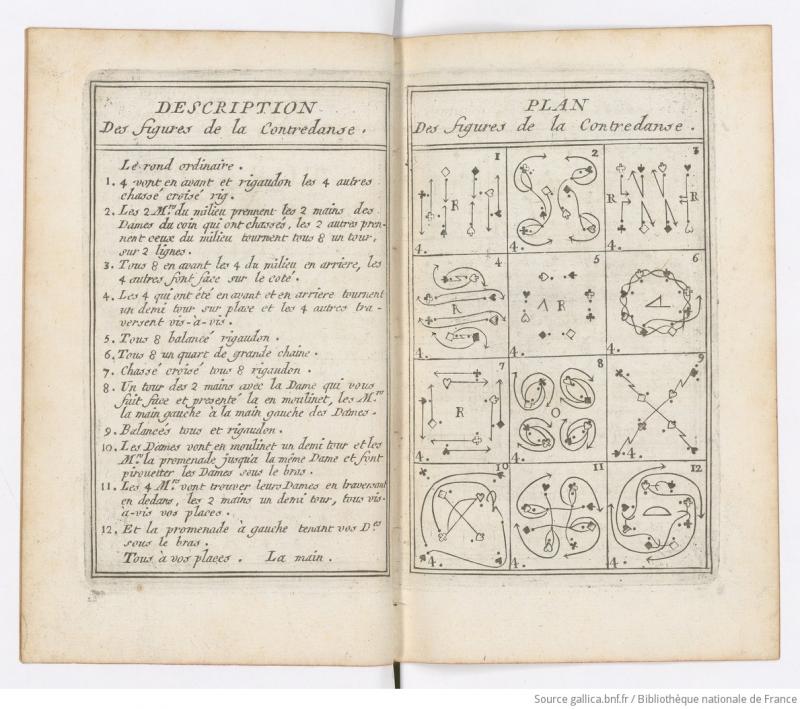 DESCRIPTION
Des figures de la Contredanse.
Le rond ordinaire.
1. 4 vont en avant et rigaudon les 4 autres
chassé croisé rig.
2. Les 2 M.rs du milieu prennent les 2 mains des
Dames du coin qui ont chassés, les 2 autres pren-
nent ceux du milieu tournent tous 8 un tour,
sur 2 lignes.
3. Tous 8 en avant les 4 du milieu en arriere, les
4 autres font face sur le coté.
4. Les 4 qui ont été en avant et en arriere tournent
un demi tour sur place et les 4 autres tra-
versent vis-à-vis.
5. Tous 8 balancé rigaudon.
6. Tous 8 un quart de grande chaine.
7. Chassé croisé tous 8 rigaudon.
8. Un tour des 2 mains avec la Dame qui vous
fait face et presenté la en moulinet, les M.rs
la main gauche à la main gauche des Dames.
9. Balancés tous et rigaudon.
10. Les Dames vont en moulinet un demi tour et les
M.rs la promenade jusqu'a la même Dame et font
pirouetter les Dames sous le bras.
11. Les 4 M.rs vont trouver leurs Dames en traversant
en dedans, les 2 mains un demi tour, tous vis-
à-vis vos places.
12. Et la promenade à gauche tenant vos D.es
sous le bras.
Tous à vos places. La main.
PLAN
Des figures de la Contredanse.
1
R
4.
2
4.
3
R R
4.
4
R
4.
5
R
4.
6
4.
7
R
4.
8
4.
9
4.
10
4.
11
4.
12
4.
Source gallica.bnf.fr / Bibliothèque nationale de France